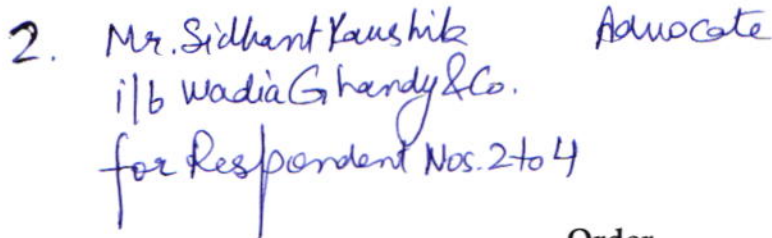 2. Mr. Sidhant Kaushik Advocate
i/b Wadia Ghandy & Co.
for Respondent Nos. 2 to 4
Order